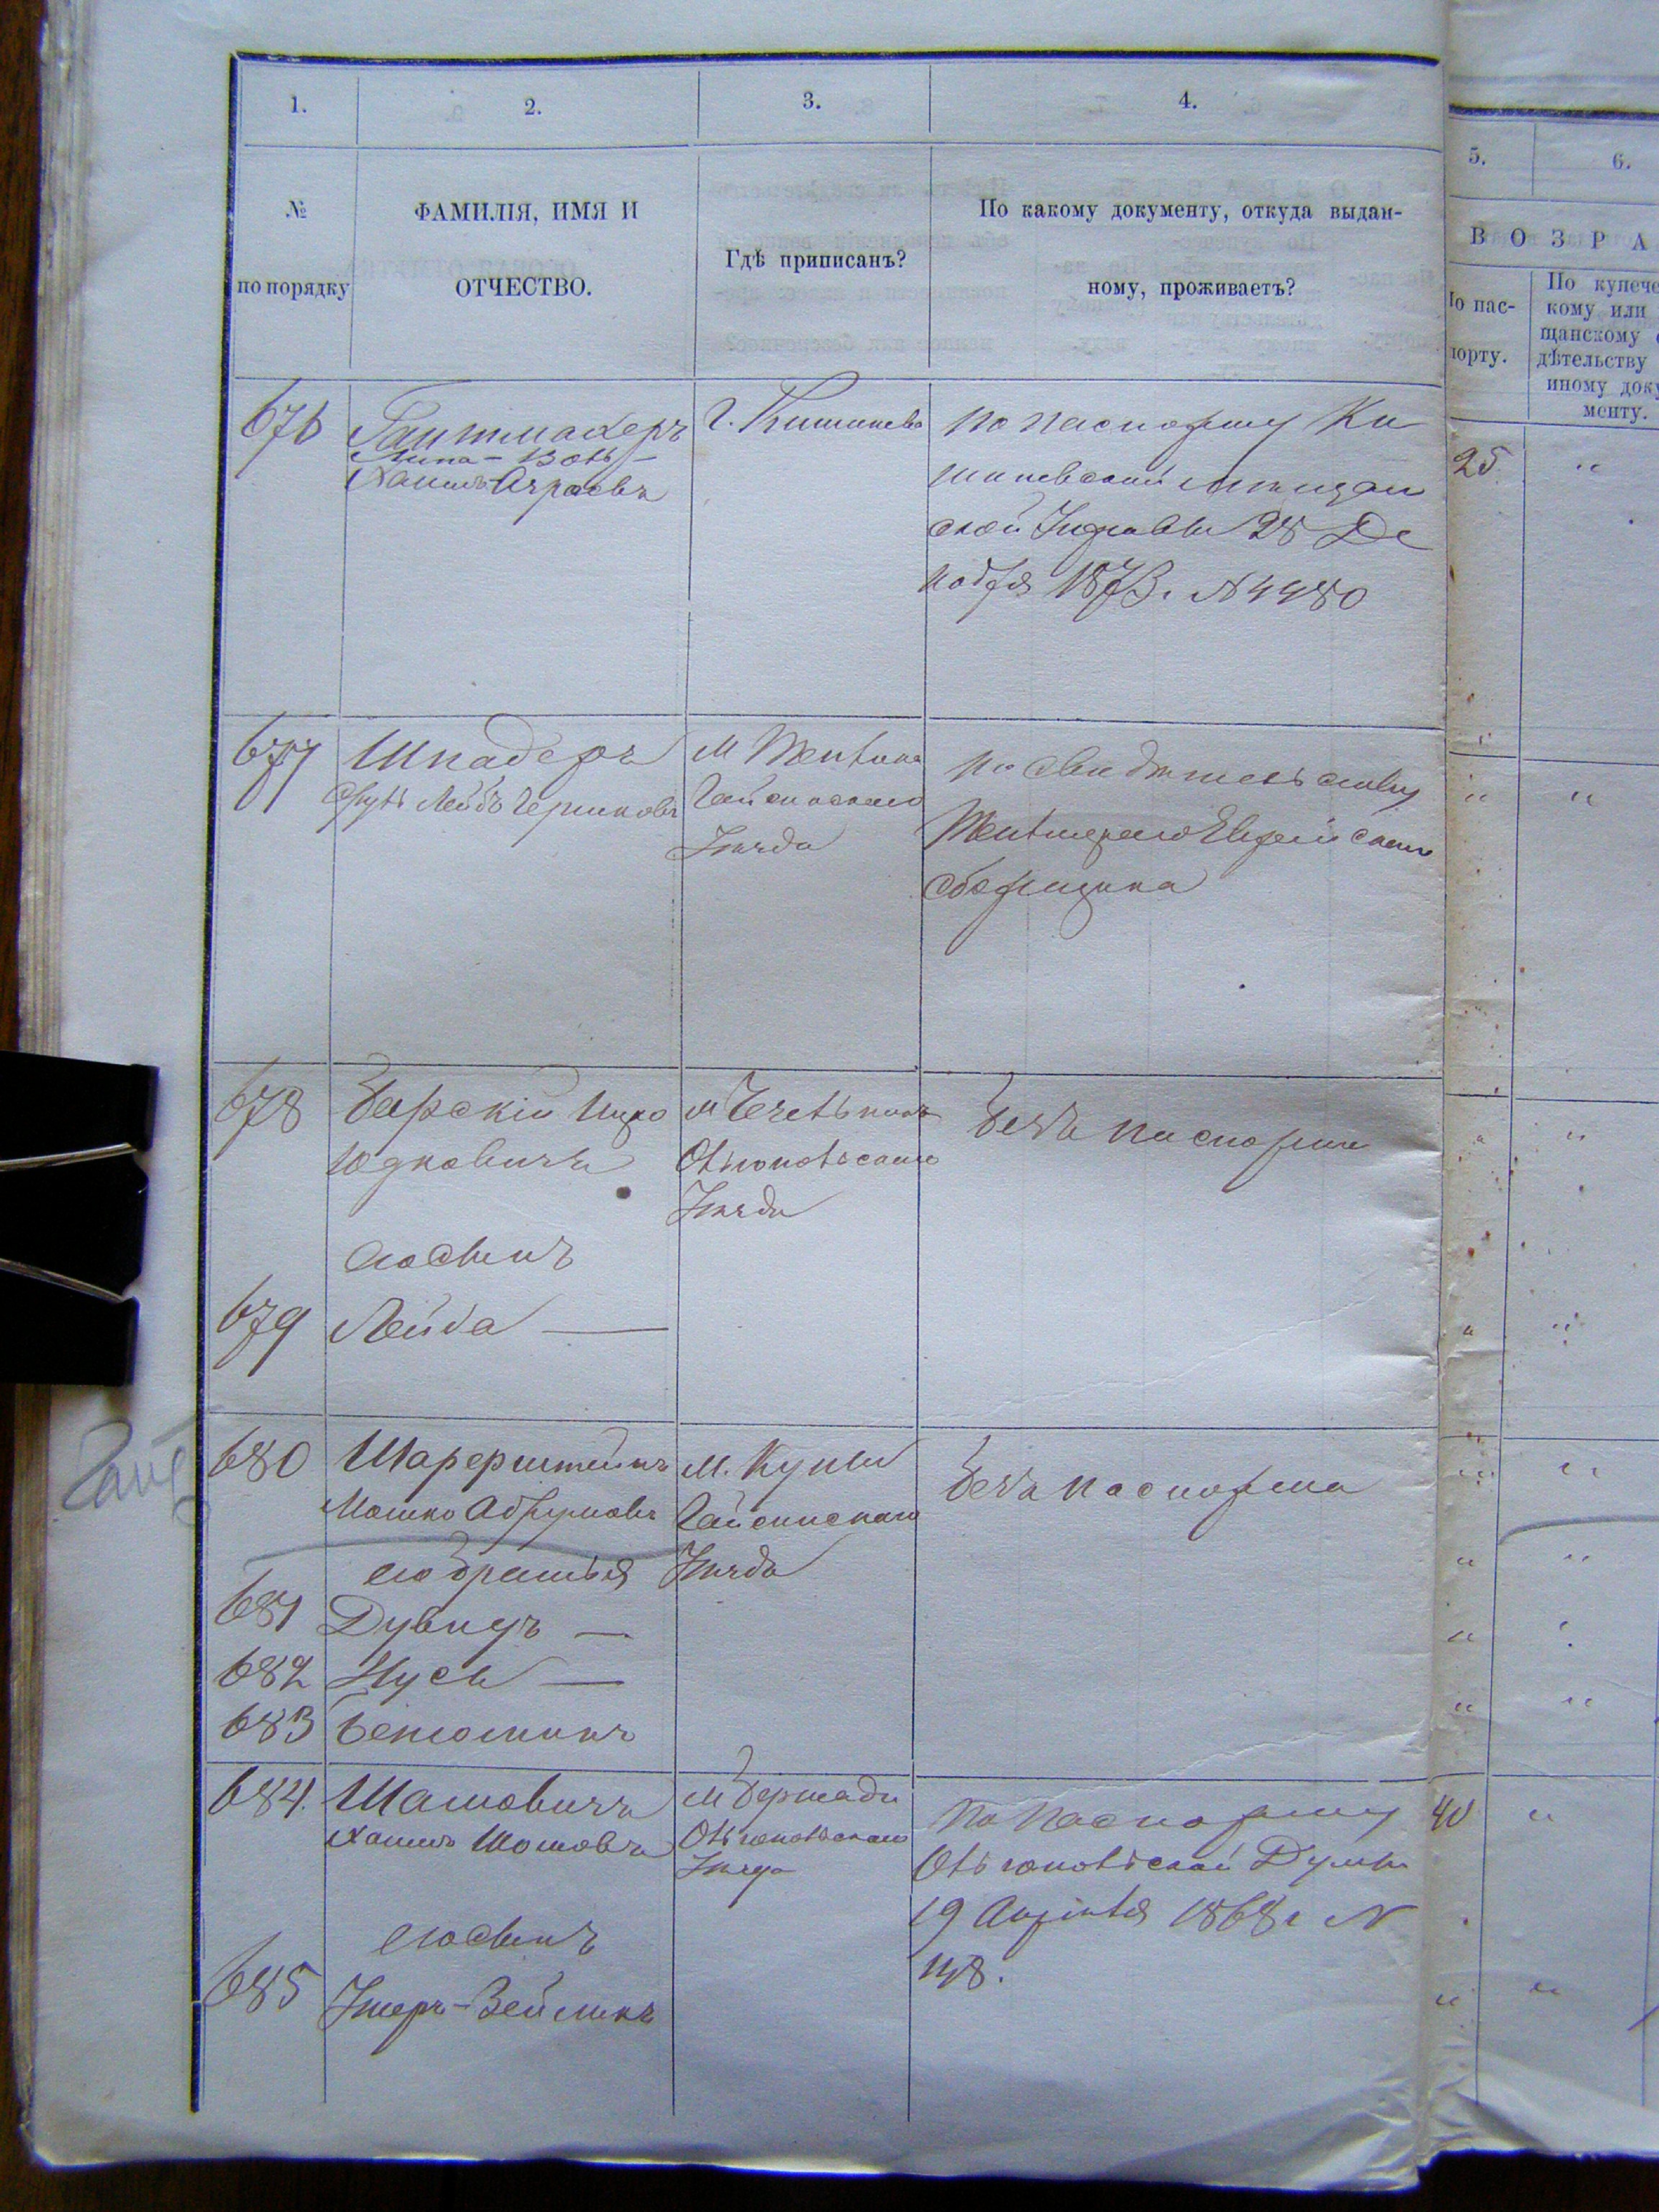 1. 2. 3. 4. 5. 6.
№
по порядку
ФАМИЛІЯ, ИМЯ И
ОТЧЕСТВО.
Гдѣ приписанъ?
По какому документу, откуда выдан-
ному, проживаетъ?
ВОЗРА
По пас-
порту.
По купече
кому или
щанскому
дѣтельству
иному доку
менту.
676
Гантмахеръ
Липа-Волъ-
Хаимъ
г. Кишинева
По паспорту Ки
шиневской мѣщан
ской Управы 28 Де
кабря 1873 г. № 4480
25 "
677
Шнадеръ
Лейбъ Гершковъ
м Теплика
Гайсинскаго
Уѣзда
По свидѣтельству
Теплицкаго Еврейскаго
сборщика
" "
678
Барскій Ицко
Юдковичъ
м Чечельника
Ольгопольскаго
Уѣзда
безъ паспорта
" "
его сынъ
679
Лейба —
" "
680
Шарерштейнъ
Мошко Абрумовъ
м. Куны
Гайсинскаго
Уѣзда
безъ паспорта
" "
его братья
" "
681
Дувидъ —
" "
682
Нусь —
683
Беньоминъ
" "
684.
Шамовичъ
Хаимъ Шомовъ
м Бершади
Ольгопольскаго
Уѣзда
По паспорту
Ольгопольской Думы
19 Апрѣля 1868 г №
148.
40 "
его сынъ
685
Ушеръ-Зейликъ
" "